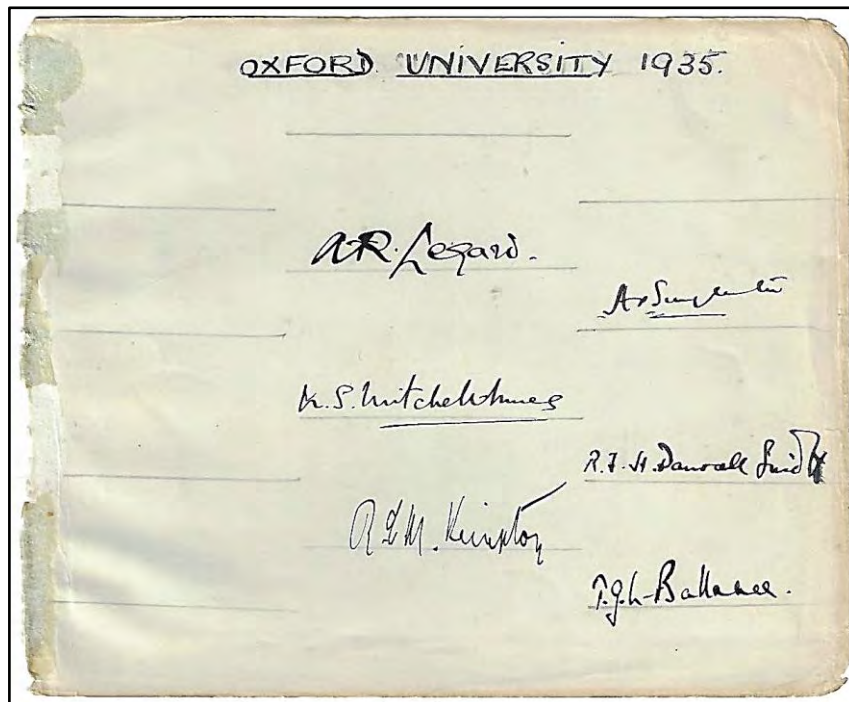 OXFORD UNIVERSITY 1935.
A.R. Legard.
N.S. Mitchell-Innes
R.F.H. Darwall Smith
R.C.M. Kimpton
T.G.L. Ballance.